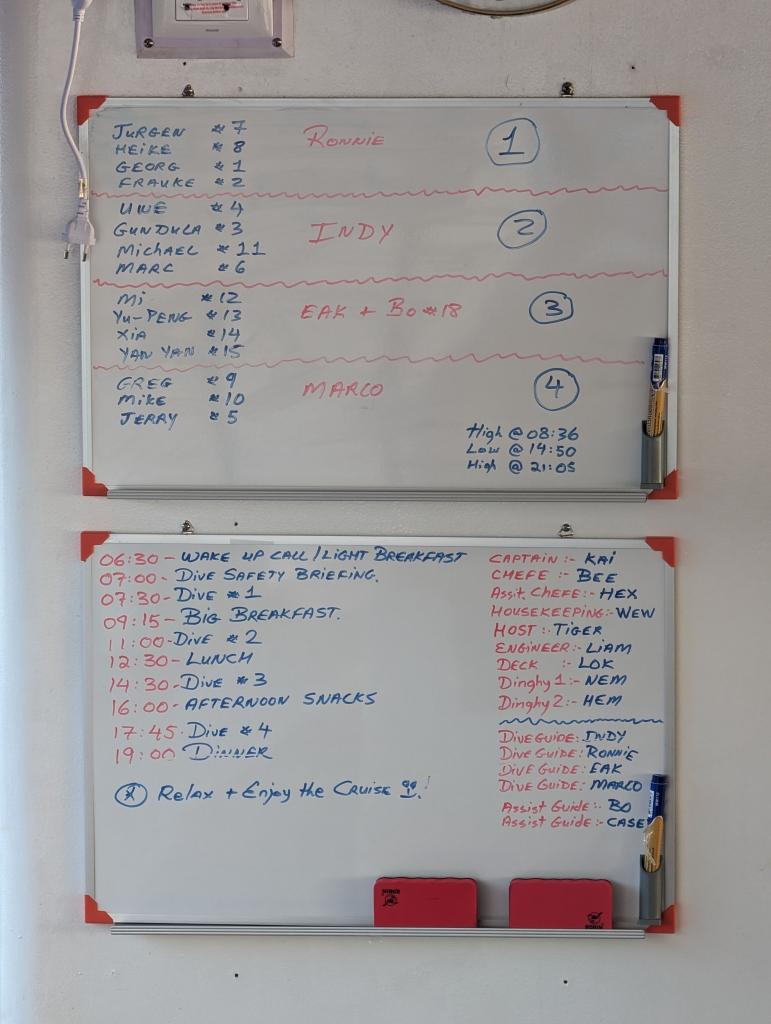 JURGEN # 7 RONNIE 1
HEIKE # 8
GEORG # 1
FRAUKE # 2
UWE # 4
GUNDULA # 3 INDY 2
MICHAEL # 11
MARC # 6
Mi # 12
YU-PENG # 13 EAK + BO #18 3
XIA # 14
YAN YAN # 15
GREG # 9 MARCO 4
MIKE # 10
JERRY # 5
High @ 08:36
Low @ 14:50
High @ 21:05
06:30 - WAKE UP CALL / LIGHT BREAKFAST
07:00 - DIVE SAFETY BRIEFING.
07:30 - DIVE # 1
09:15 - BIG BREAKFAST.
11:00 - DIVE # 2
12:30 - LUNCH
14:30 - DIVE # 3
16:00 - AFTERNOON SNACKS
17:45 - DIVE # 4
19:00 DINNER
Relax + Enjoy the Cruise !!!
CAPTAIN :- KAI
CHEFE :- BEE
Assit CHEFE :- HEX
HOUSEKEEPING :- WEW
HOST :- TIGER
ENGINEER :- LIAM
DECK :- LOK
Dinghy 1 :- NEM
Dinghy 2 :- HEM
DIVE GUIDE : INDY
DIVE GUIDE : RONNIE
DIVE GUIDE : EAK
DIVE GUIDE : MARCO
Assist Guide :- BO
Assist Guide :- CASE